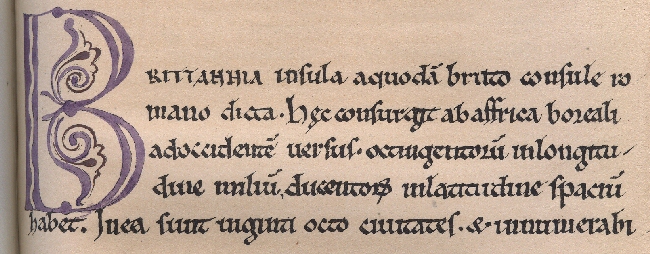 BRITTANNIA insula aquodā britto consule ro
mano dicta. Hęc consurgit ab affrica boreali
adoccidentē uersus. octingentorū inlongitu-
dine miliū, ducentorꝝ inlatitudine spaciū
habet. In ea sunt uiginti octo ciuitates. & innumerabi